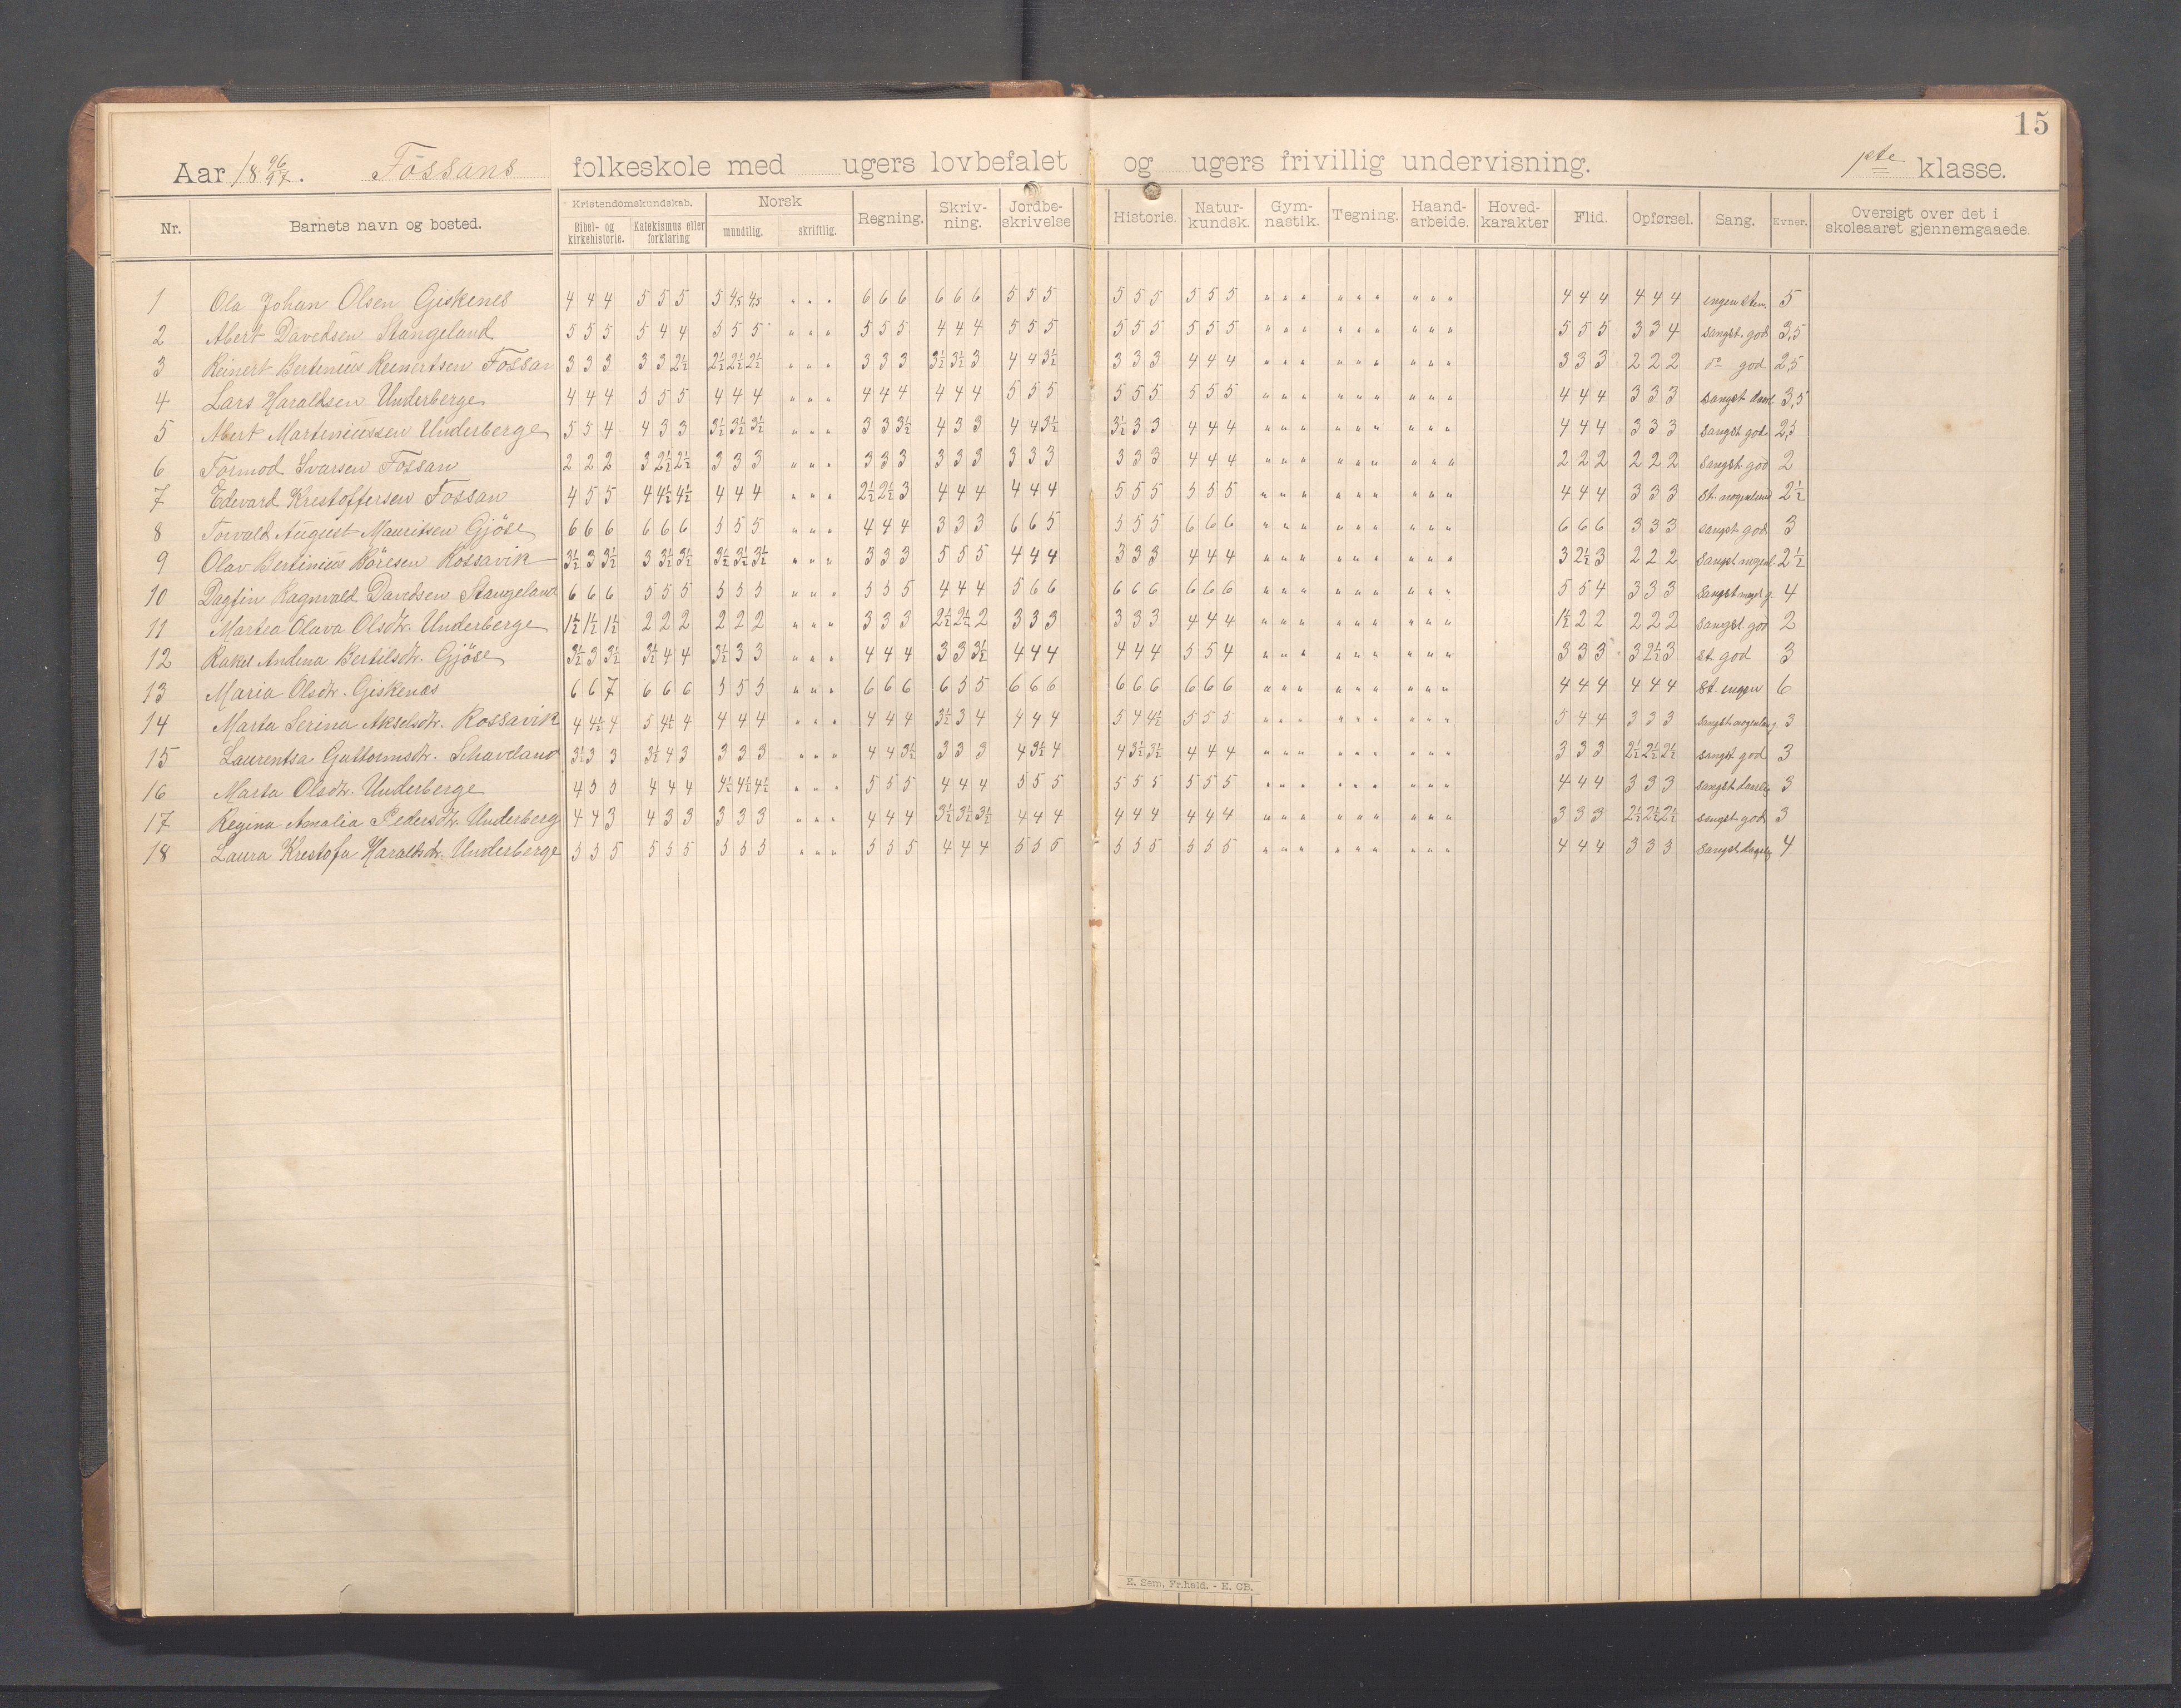 15
Aar 18 96/97. Fossans folkeskole med ugers lovbefalet og ugers frivillig undervisning. 1ste klasse.
Nr. Barnets navn og bosted. Kristendomskundskab. Bibel- og kirkehistorie. Katekismus eller forklaring Norsk mundtlig. skriftlig. Regning. Skriv-ning. Jordbe-skrivelse Historie. Natur-kundsk. Gym-nastik. Tegning. Haand-arbeide. Hoved-karakter Flid. Opførsel. Sang. Evner. Oversigt over det i skoleaaret gjennemgaaede.
1 Ola Johan Olsen Giskenes 4 4 4 5 5 5 5 4,5 4,5 " " " 6 6 6 6 6 6 5 5 5 5 5 5 5 5 5 " " " " " " " " " 4 4 4 4 4 4 ingen stem. 5
2 Abert Davedsen Stangeland 5 5 5 5 4 4 5 5 5 " " " 5 5 5 4 4 4 5 5 5 5 5 5 5 5 5 " " " " " " " " " 5 5 5 3 3 4 sangst. god 3,5
3 Reinert Bertinius Reinertsen Fossan 3 3 3 3 3 2½ 2½ 2½ 2½ " " " 3 3 3 3½ 3½ 3 4 4 3½ 3 3 3 4 4 4 " " " " " " " " " 3 3 3 2 2 2 do god 2,5
4 Lars Haraldsen Underberge 4 4 4 5 5 5 4 4 4 " " " 4 4 4 4 4 4 5 5 5 5 5 5 5 5 5 " " " " " " " " " 4 4 4 3 3 3 sangst daarl. 3,5
5 Abert Martiniussen Underberge 5 5 4 4 3 3 3½ 3½ 3½ " " " 3 3 3½ 4 3 3 4 4 3½ 3½ 3 3 4 4 4 " " " " " " " " " 4 4 4 3 3 3 sangst god 2,5
6 Tormod Ivarsen Fossan 2 2 2 3 2½ 2½ 3 3 3 " " " 3 3 3 3 3 3 3 3 3 3 3 3 4 4 4 " " " " " " " " " 2 2 2 2 2 2 sangst god 2
7 Edevard Kristoffersen Fossan 4 5 5 4 4½ 4½ 4 4 4 " " " 2½ 2½ 3 4 4 4 4 4 4 5 5 5 5 5 5 " " " " " " " " " 4 4 4 3 3 3 St. nogenlund 2½
8 Torvald August Mauritsen Gjöse 6 6 6 6 6 6 5 5 5 " " " 4 4 4 3 3 3 6 6 5 5 5 5 6 6 6 " " " " " " " " " 6 6 6 3 3 3 sangst god 3
9 Olav Bertinius Böresen Rossavik 3½ 3 3½ 3 3½ 3½ 3½ 3½ 3½ " " " 3 3 3 5 5 5 4 4 4 3 3 3 4 4 4 " " " " " " " " " 3 2½ 3 2 2 2 Sangst nogenl. 2½
10 Dagfin Ragnvald Davedsen Stangeland 6 6 6 5 5 5 5 5 5 " " " 5 5 5 4 4 4 5 6 6 6 6 6 6 6 6 " " " " " " " " " 5 5 4 3 3 3 Sangst megd g. 4
11 Martea Olava Olsdtr. Underberge 1½ 1½ 1½ 2 2 2 2 2 2 " " " 3 3 3 2½ 2½ 2 3 3 3 3 3 3 4 4 4 " " " " " " " " " 1½ 2 2 2 2 2 Sangst. god 2
12 Rakel Andina Bertilsdtr. Gjöse 3½ 3 3½ 3½ 4 4 3½ 3 3 " " " 4 4 4 3 3 3½ 4 4 4 4 4 4 5 5 4 " " " " " " " " " 3 3 3 3 2½ 3 st god 3
13 Maria Olsdtr. Giskenæs 6 6 7 6 6 6 5 5 5 " " " 6 6 6 6 5 5 6 6 6 6 6 6 6 6 6 " " " " " " " " " 4 4 4 4 4 4 St. ingen 6
14 Marta Serina Akselsdtr. Rossavik 4 4½ 4 5 4½ 4 4 4 4 " " " 4 4 4 3½ 3 4 4 4 4 5 4 4½ 5 5 5 " " " " " " " " " 5 4 4 3 3 3 sangst nogenlu g. 3
15 Laurentsa Guttormsdtr. Schavdand 3½ 3 3 3½ 4 3 3 3 3 " " " 4 4 3½ 3 3 3 4 3½ 4 4 3½ 3½ 4 4 4 " " " " " " " " " 3 3 3 2½ 2½ 2½ sangst god 3
16 Marta Olsdtr. Underberge 4 5 5 4 4 4 4½ 4½ 4½ " " " 5 5 5 4 4 4 5 5 5 5 5 5 5 5 5 " " " " " " " " " 4 4 4 3 3 3 sangst daarlig 3
17 Regina Amalia Pedersdtr. Underberg 4 4 3 4 3 3 3 3 3 " " " 4 4 4 3½ 3½ 3½ 4 4 4 4 4 4 4 4 4 " " " " " " " " " 3 3 3 2½ 2½ 2½ sangst god 3
18 Laura Krestofa Haraldsdtr. Underberge 5 5 5 5 5 5 5 5 5 " " " 5 5 5 4 4 4 5 5 5 5 5 5 5 5 5 " " " " " " " " " 4 4 4 3 3 3 Sangst. 4
E. Sem. Fr.hald. - E. CB.